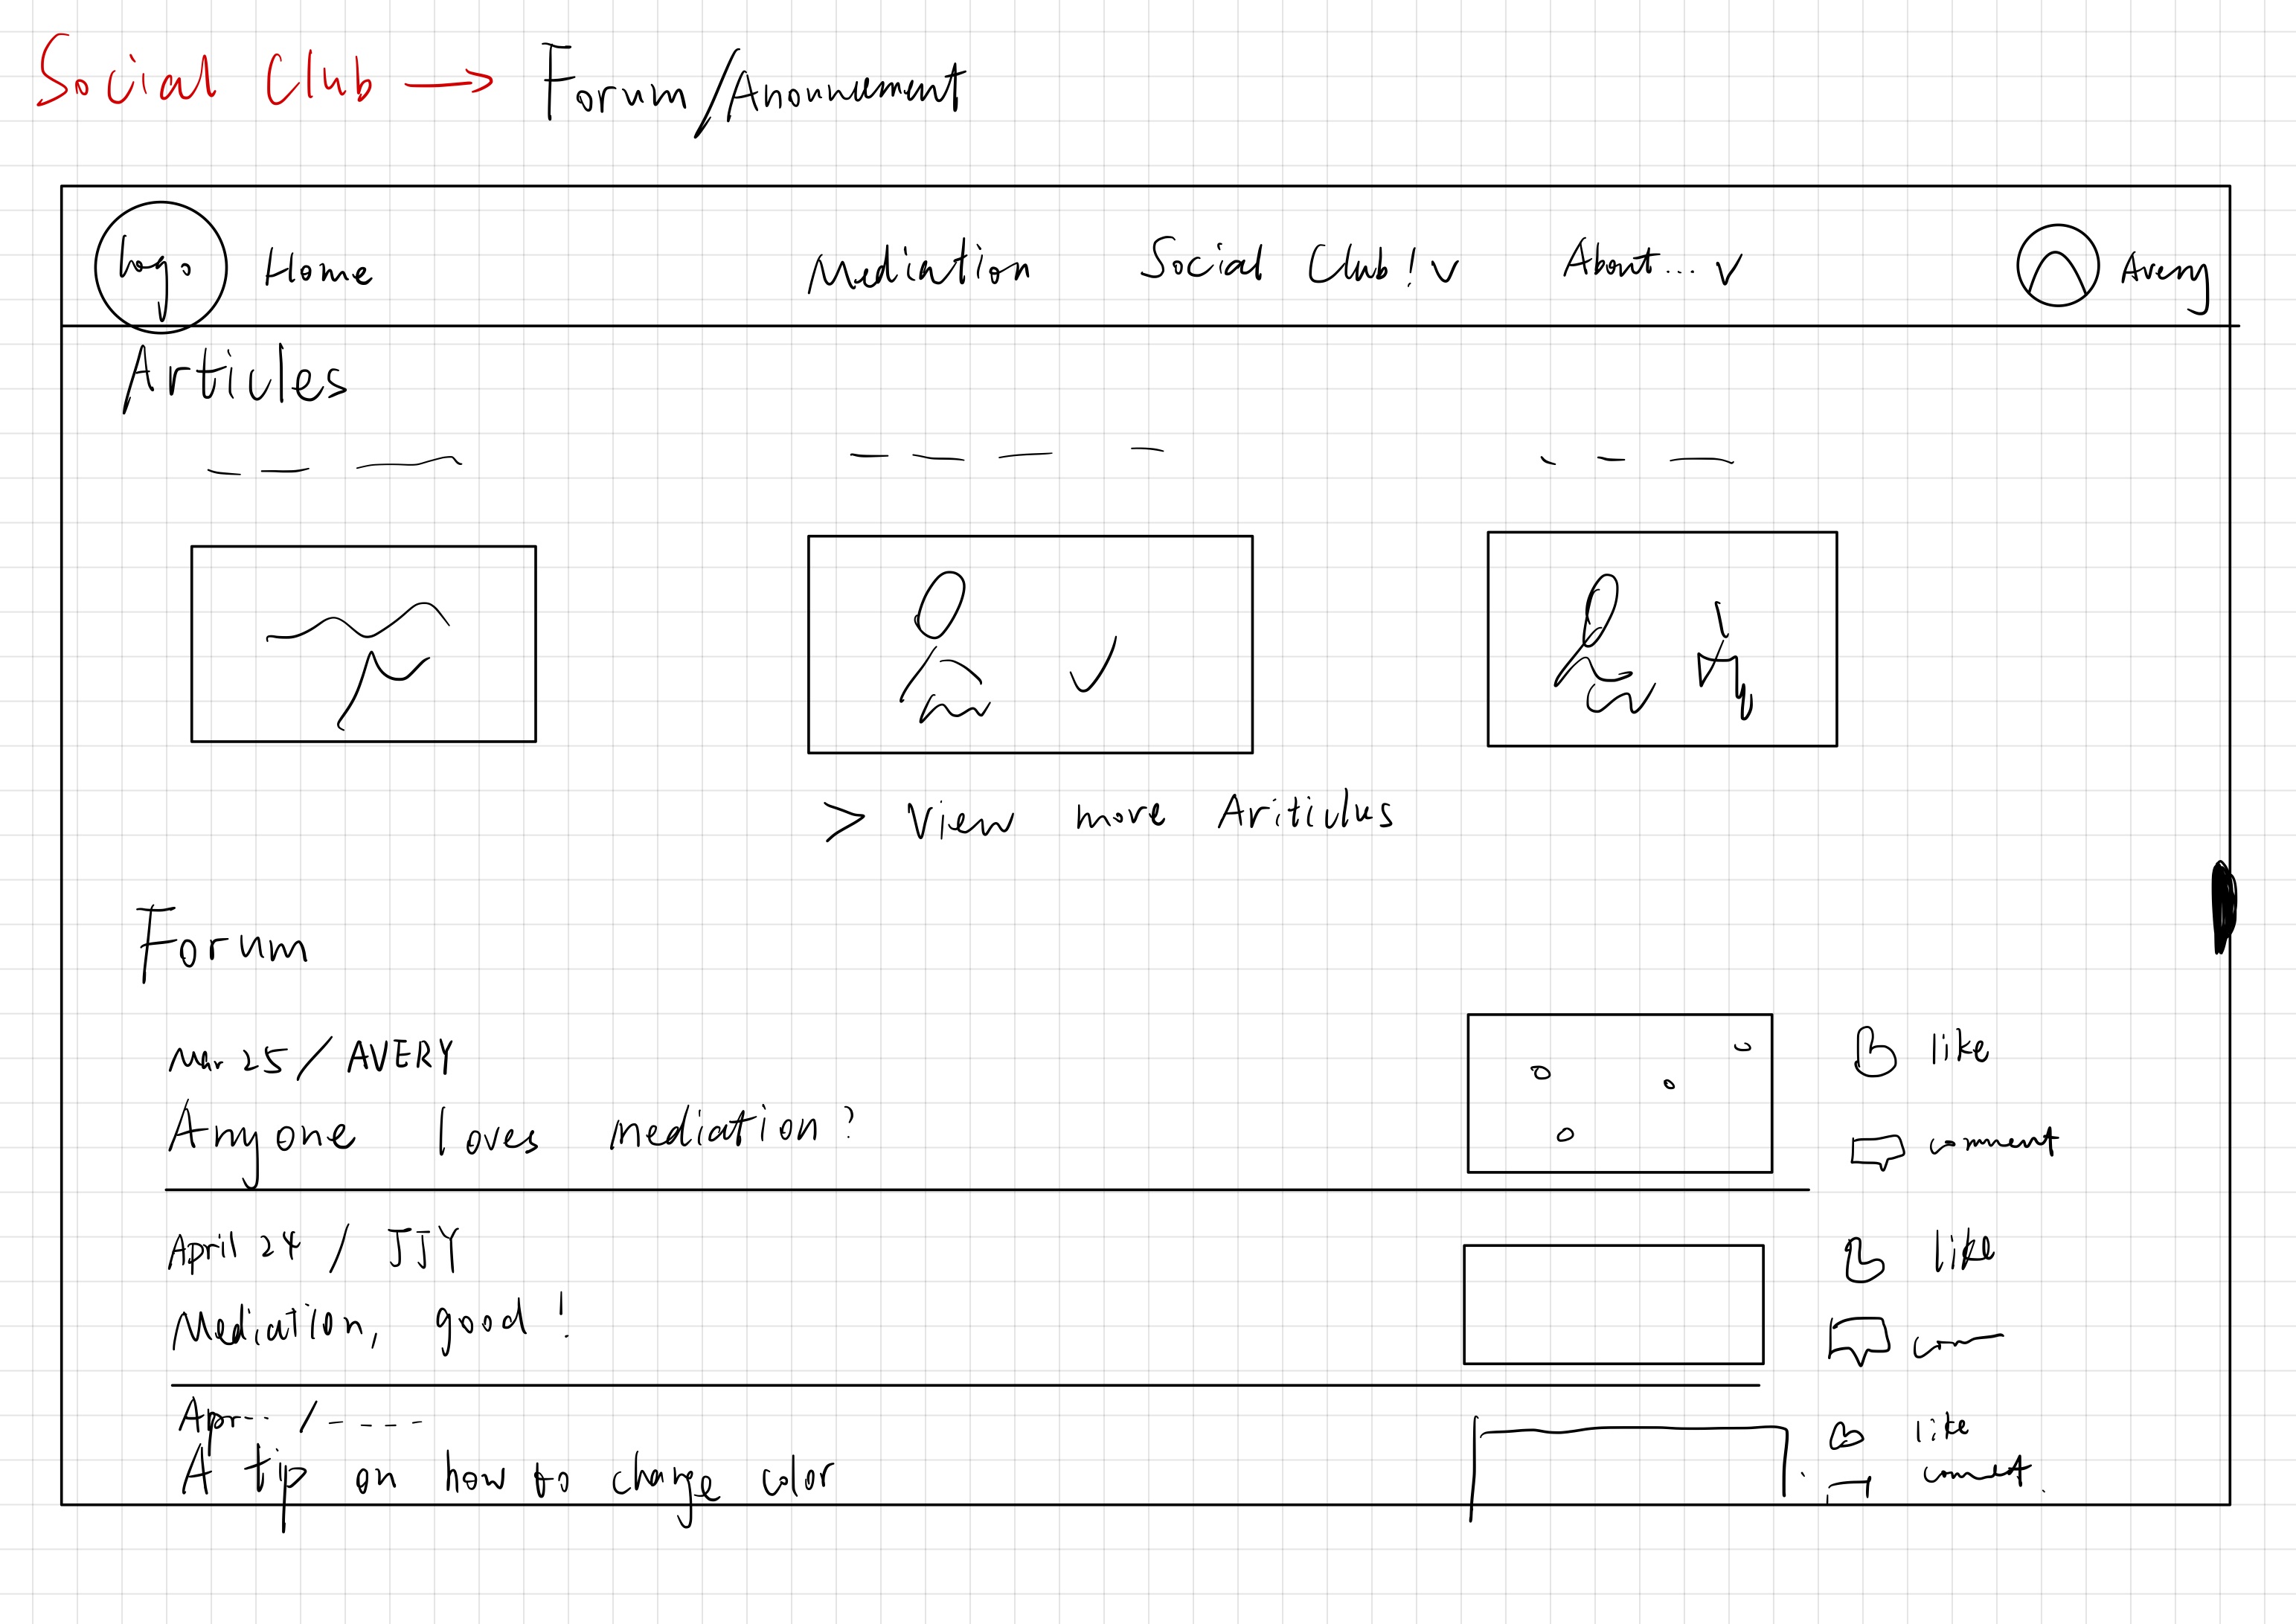 Social Club → Forum/Anounument
Logo Home Mediation Social Club! ∨ About... ∨ Avery
Articles
> View more Ariticles
Forum
Mar 25 / AVERY
like
Anyone loves mediation?
comment
April 24 / JJY
like
Mediation, good!
com
Apr-- / ----
like
A tip on how to change color
comment.